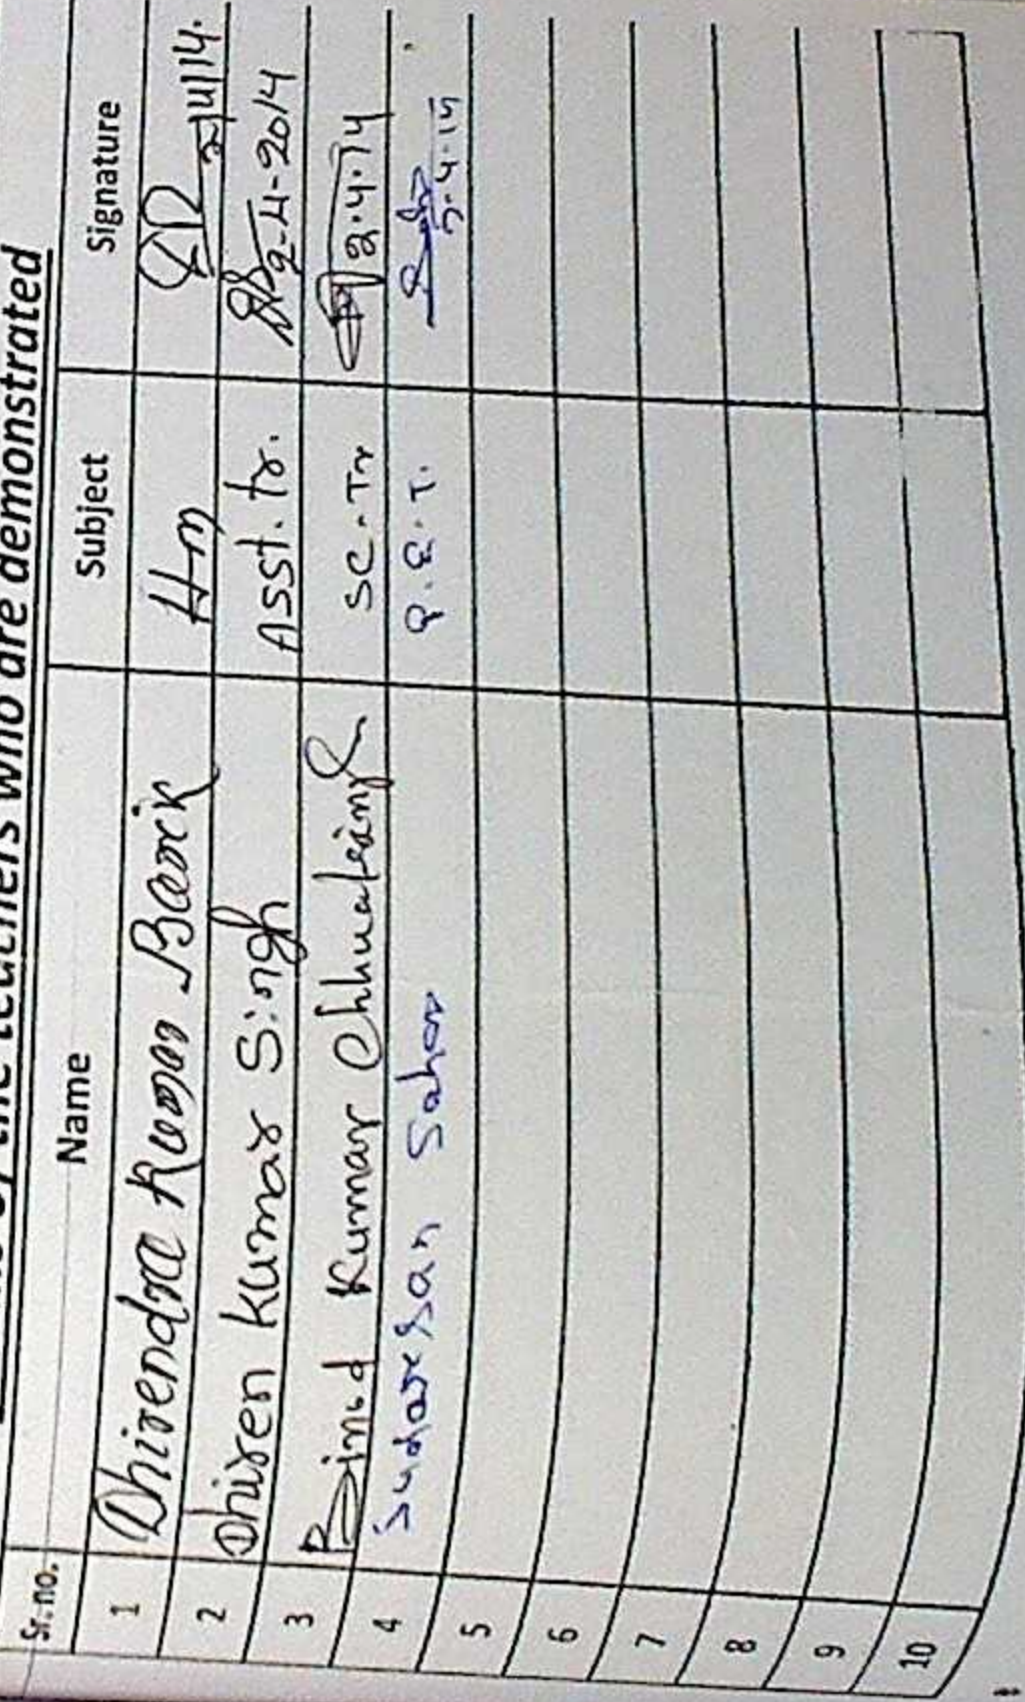 the teachers who are demonstrated
Sr. no. Name Subject Signature
1 Dhirendra Kumar Barik Hm 2/4/14.
2 Dhiren Kumar Singh Asst. tr. 2-4-2014
3 Binod Kumar Chhuatsingh SC. Tr 2.4.14
4 Sudarsan Sahoo P.E.T. 2.4.14
5
6
7
8
9
10